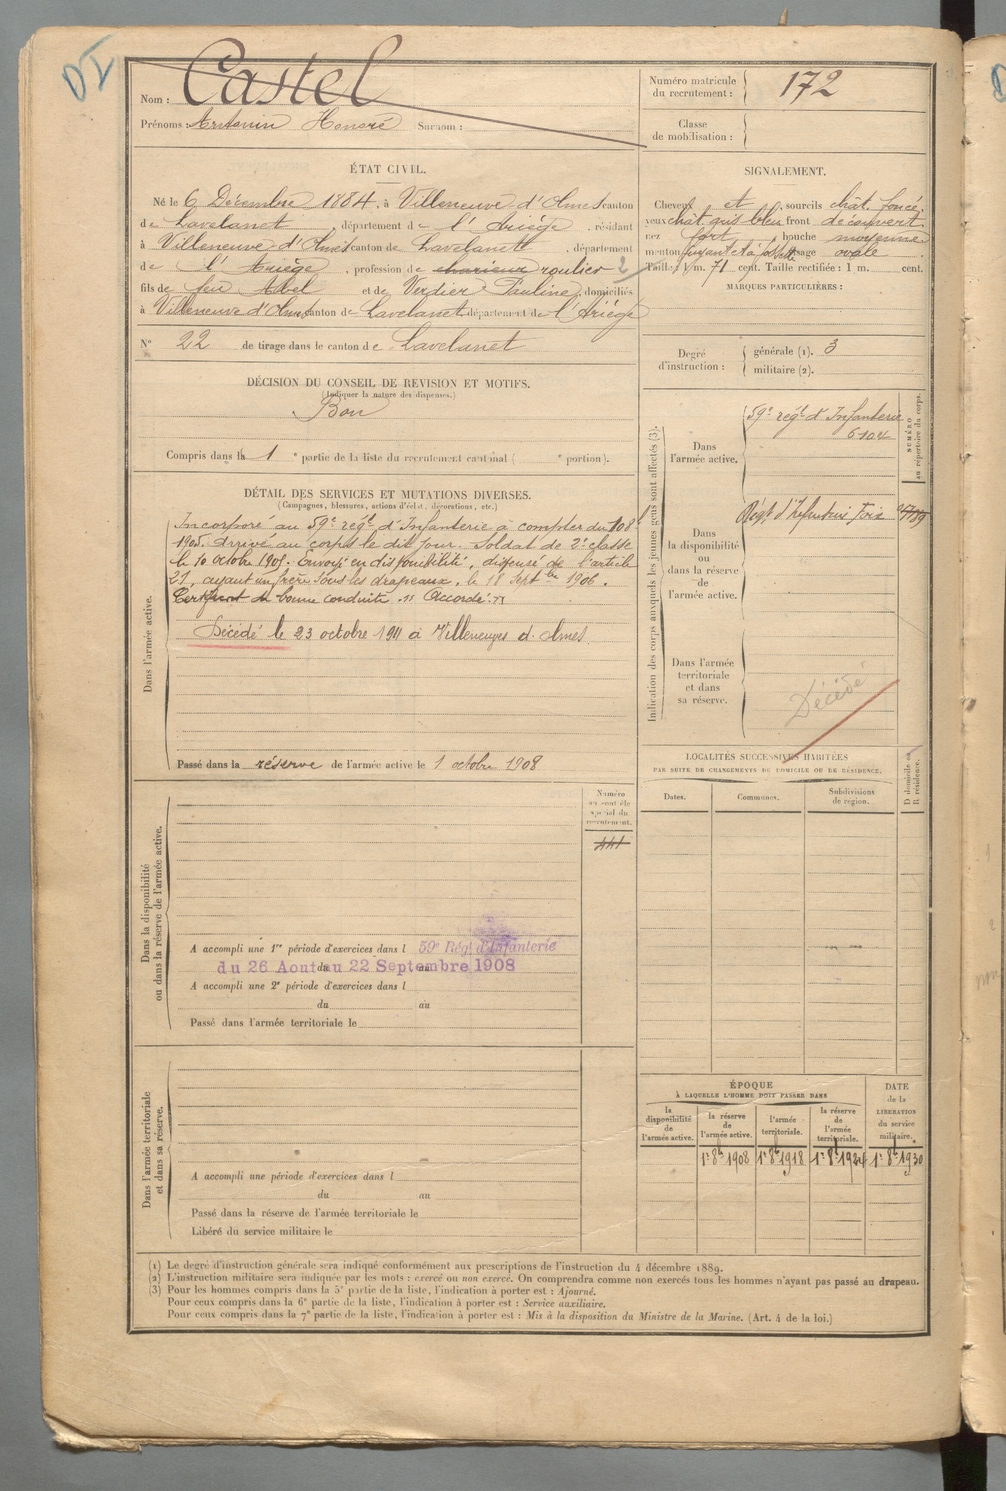 DI
Nom : Castel
Prénoms : Antonin Honoré Surnom :
Numéro matricule du recrutement : 172
Classe de mobilisation :
ÉTAT CIVIL.
Né le 6 Décembre 1884, à Villeneuve d'Olmes canton
de Lavelanet, département de l'Ariège, résidant
à Villeneuve d'Olmes canton de Lavelanet, département
de l'Ariège, profession de roulier 2
fils de feu Abel et de Verdier Pauline, domiciliés
à Villeneuve d'Olmes canton de Lavelanet département de l'Ariège
N° 22 de tirage dans le canton de Lavelanet
SIGNALEMENT.
Cheveux et sourcils chât. foncé,
yeux chât. gris bleu front découvert
nez fort, bouche moyenne
menton fuyant et à fossette visage ovale
Taille : 1 m. 71 cent. Taille rectifiée : 1 m. cent.
MARQUES PARTICULIÈRES :
Degré d'instruction : générale (1). 3
militaire (2).
DÉCISION DU CONSEIL DE REVISION ET MOTIFS.
(Indiquer la nature des dispenses.)
Bon
Compris dans la 1 e partie de la liste du recrutement cantonal ( e portion).
DÉTAIL DES SERVICES ET MUTATIONS DIVERSES.
(Campagnes, blessures, actions d'éclat, décorations, etc.)
Dans l'armée active.
Incorporé au 59e régt d'Infanterie à compter du 10 8bre
1905. Arrivé au corps le dit jour. Soldat de 2e classe
le 10 octobre 1905. Envoyé en disponibilité, dispensé de l'article
21, ayant un frère sous les drapeaux, le 18 Septbre 1906.
Certificat de bonne conduite "Accordé."
Décédé le 23 octobre 1911 à Villeneuve d'Olmes
Passé dans la réserve de l'armée active le 1 octobre 1908
Indication des corps auxquels les jeunes gens sont affectés (3).
NUMÉRO au répertoire du corps.
Dans l'armée active.
59e régt d'Infanterie
6104
Dans la disponibilité ou dans la réserve de l'armée active.
Régt d'Infanterie Foix
Dans l'armée territoriale et dans sa réserve.
Décédé
LOCALITÉS SUCCESSIVES HABITÉES
PAR SUITE DE CHANGEMENTS DE DOMICILE OU DE RÉSIDENCE.
Dates. Communes. Subdivisions de région. D domicile ou R résidence.
Dans la disponibilité ou dans la réserve de l'armée active.
Numéro au contrôle spécial du recrutement.
441
A accompli une 1re période d'exercices dans l 59e Régt d'Infanterie
du 26 Aout au 22 Septembre 1908
A accompli une 2e période d'exercices dans l
du au
Passé dans l'armée territoriale le
Dans l'armée territoriale et dans sa réserve.
A accompli une période d'exercices dans l
du au
Passé dans la réserve de l'armée territoriale le
Libéré du service militaire le
ÉPOQUE
À LAQUELLE L'HOMME DOIT PASSER DANS
la disponibilité de l'armée active. la réserve de l'armée active. l'armée territoriale. la réserve de l'armée territoriale.
DATE de la LIBÉRATION du service militaire.
1er 8b 1908 1er 8b 1918 1er 8b 1924 1er 8b 1930
(1) Le degré d'instruction générale sera indiqué conformément aux prescriptions de l'instruction du 4 décembre 1889.
(2) L'instruction militaire sera indiquée par les mots : exercé ou non exercé. On comprendra comme non exercés tous les hommes n'ayant pas passé au drapeau.
(3) Pour les hommes compris dans la 5e partie de la liste, l'indication à porter est : Ajourné.
Pour ceux compris dans la 6e partie de la liste, l'indication à porter est : Service auxiliaire.
Pour ceux compris dans la 7e partie de la liste, l'indication à porter est : Mis à la disposition du Ministre de la Marine. (Art. 4 de la loi.)